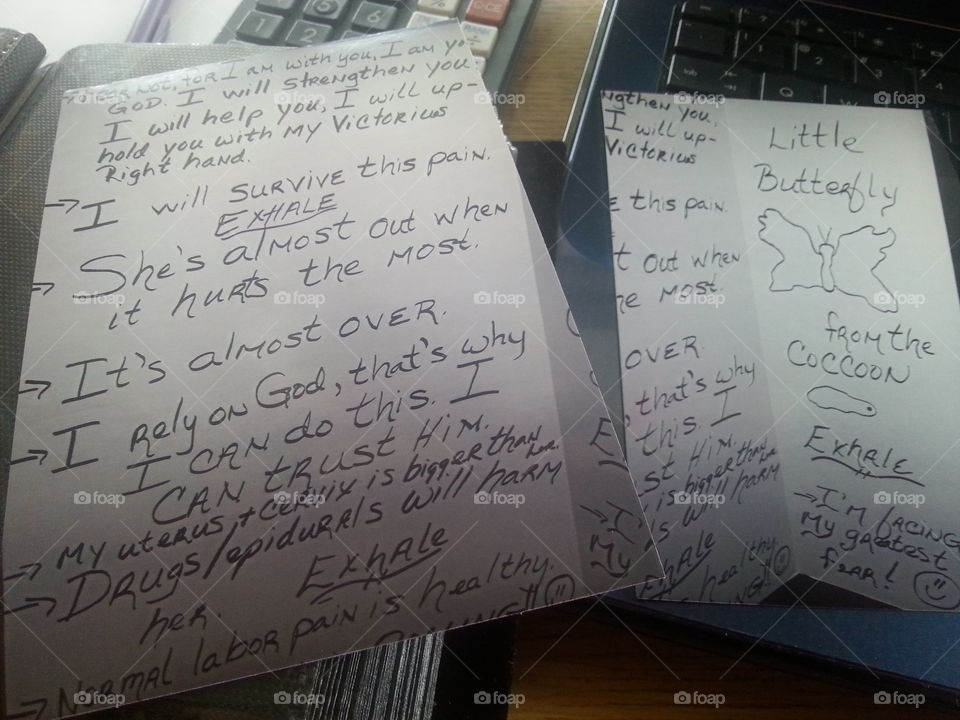 → Fear not, for I am with you, I am yo
God. I will strengthen you.
I will help you, I will up-
hold you with My Victorius
Right hand.
→ I will SURVIVE this pain.
EXHALE
→ She's almost out when
it hurts the most.
→ It's almost OVER.
→ I Rely on God, that's why
I CAN do this. I
CAN TRUST Him.
→ My uterus, + cervix is bigger than
her.
→ Drugs/epidurals will harm
her.
Exhale
→ Normal labor pain is healthy.
ngthen you.
I will up-
Victorius
E this pain.
t out when
he most.
OVER.
, that's why
this. I
st Him.
, is bigger than
her.
ls will harm
Exhale
healthy.
Little
Butterfly
from the
Coccoon
Exhale
→ I'm facing
My greatest
fear!
E
→ I'
My
1
2
5
6
foap